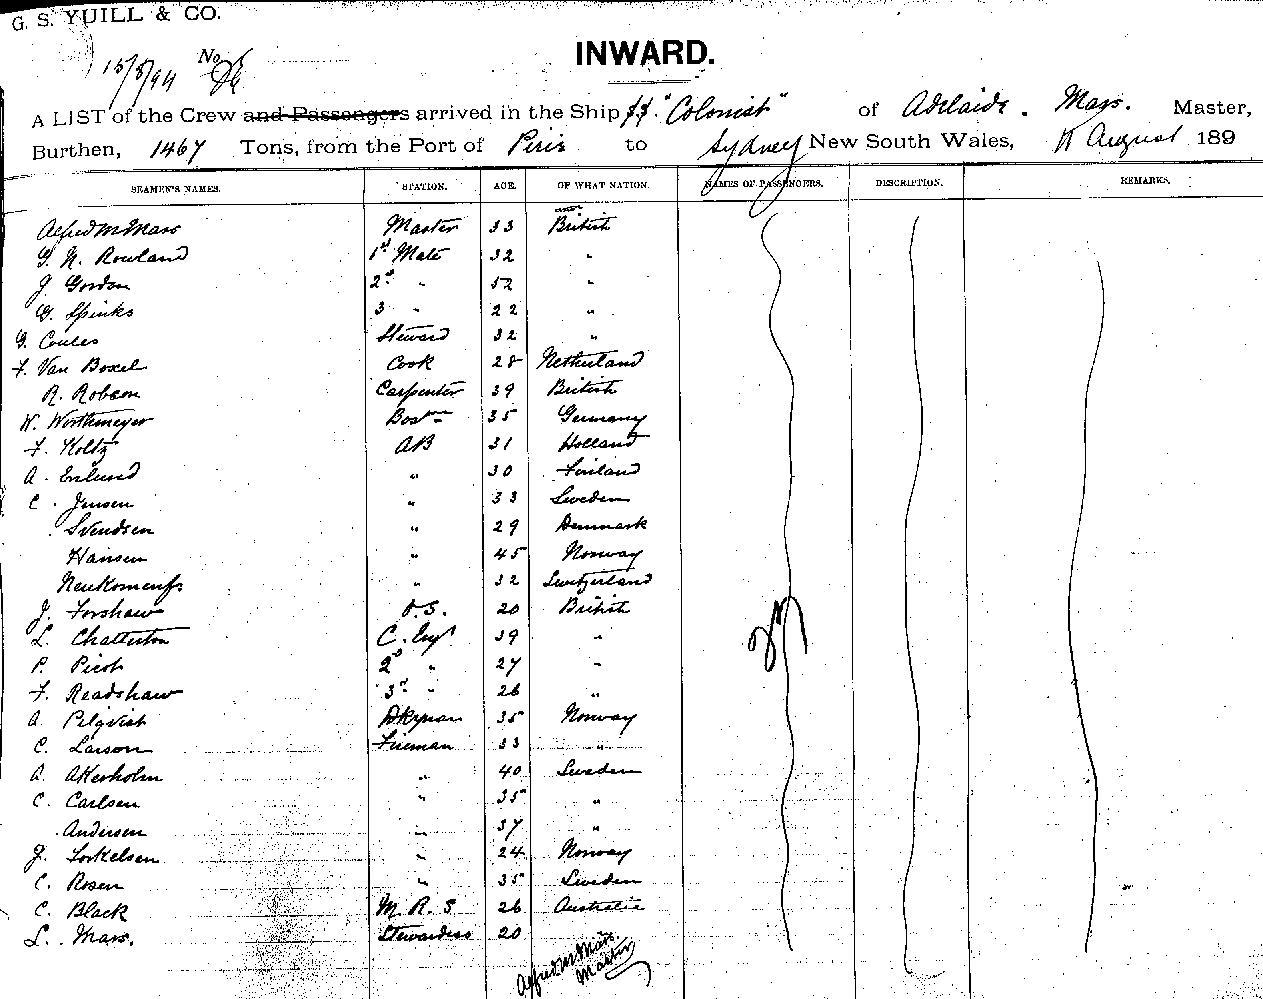 G. S. YUILL & CO.
15/8/94 No
INWARD.
A LIST of the Crew and Passengers arrived in the Ship SS. "Colonist" of Adelaide. Mars. Master,
Burthen, 1467 Tons, from the Port of Pirie to Sydney New South Wales, August 189
SEAMEN'S NAMES. STATION. AGE. OF WHAT NATION. NAMES OF PASSENGERS. DESCRIPTION. REMARKS.
Alfred M Mars Master 33 British
G. N. Rowland 1st Mate 32 "
J. Gordon 2nd " 52 "
G. Spinks 3 " 22 "
G. Coules Steward 32 "
F. Van Boxel Cook 28 Netherland
R. Robson Carpenter 39 British
W. Worthmeyer Bostn 35 Germany
F. Holtz AB 31 Holland
A. Enlund " 30 Finland
C. Jensen " 33 Sweden
Svendsen " 29 Denmark
Hansen " 45 Norway
" 32 Switzerland
J. Forshaw O.S. 20 British
L. Chatterton C. Engr 39 "
P. Picot 2nd " 27 "
F. Readshaw 3rd " 26 "
A. Pilqvist Dkyman 35 Norway
C. Larson Fireman 33 "
A. Akerholm " 40 Sweden
C. Carlsen " 35 "
Andersen " 37 "
J. Torkelsen " 24 Norway
C. Rosen " 35 Sweden
C. Black M. R. S 26 Australia
L. Mars. Stewardess 20
Alfred M Mars.
Master